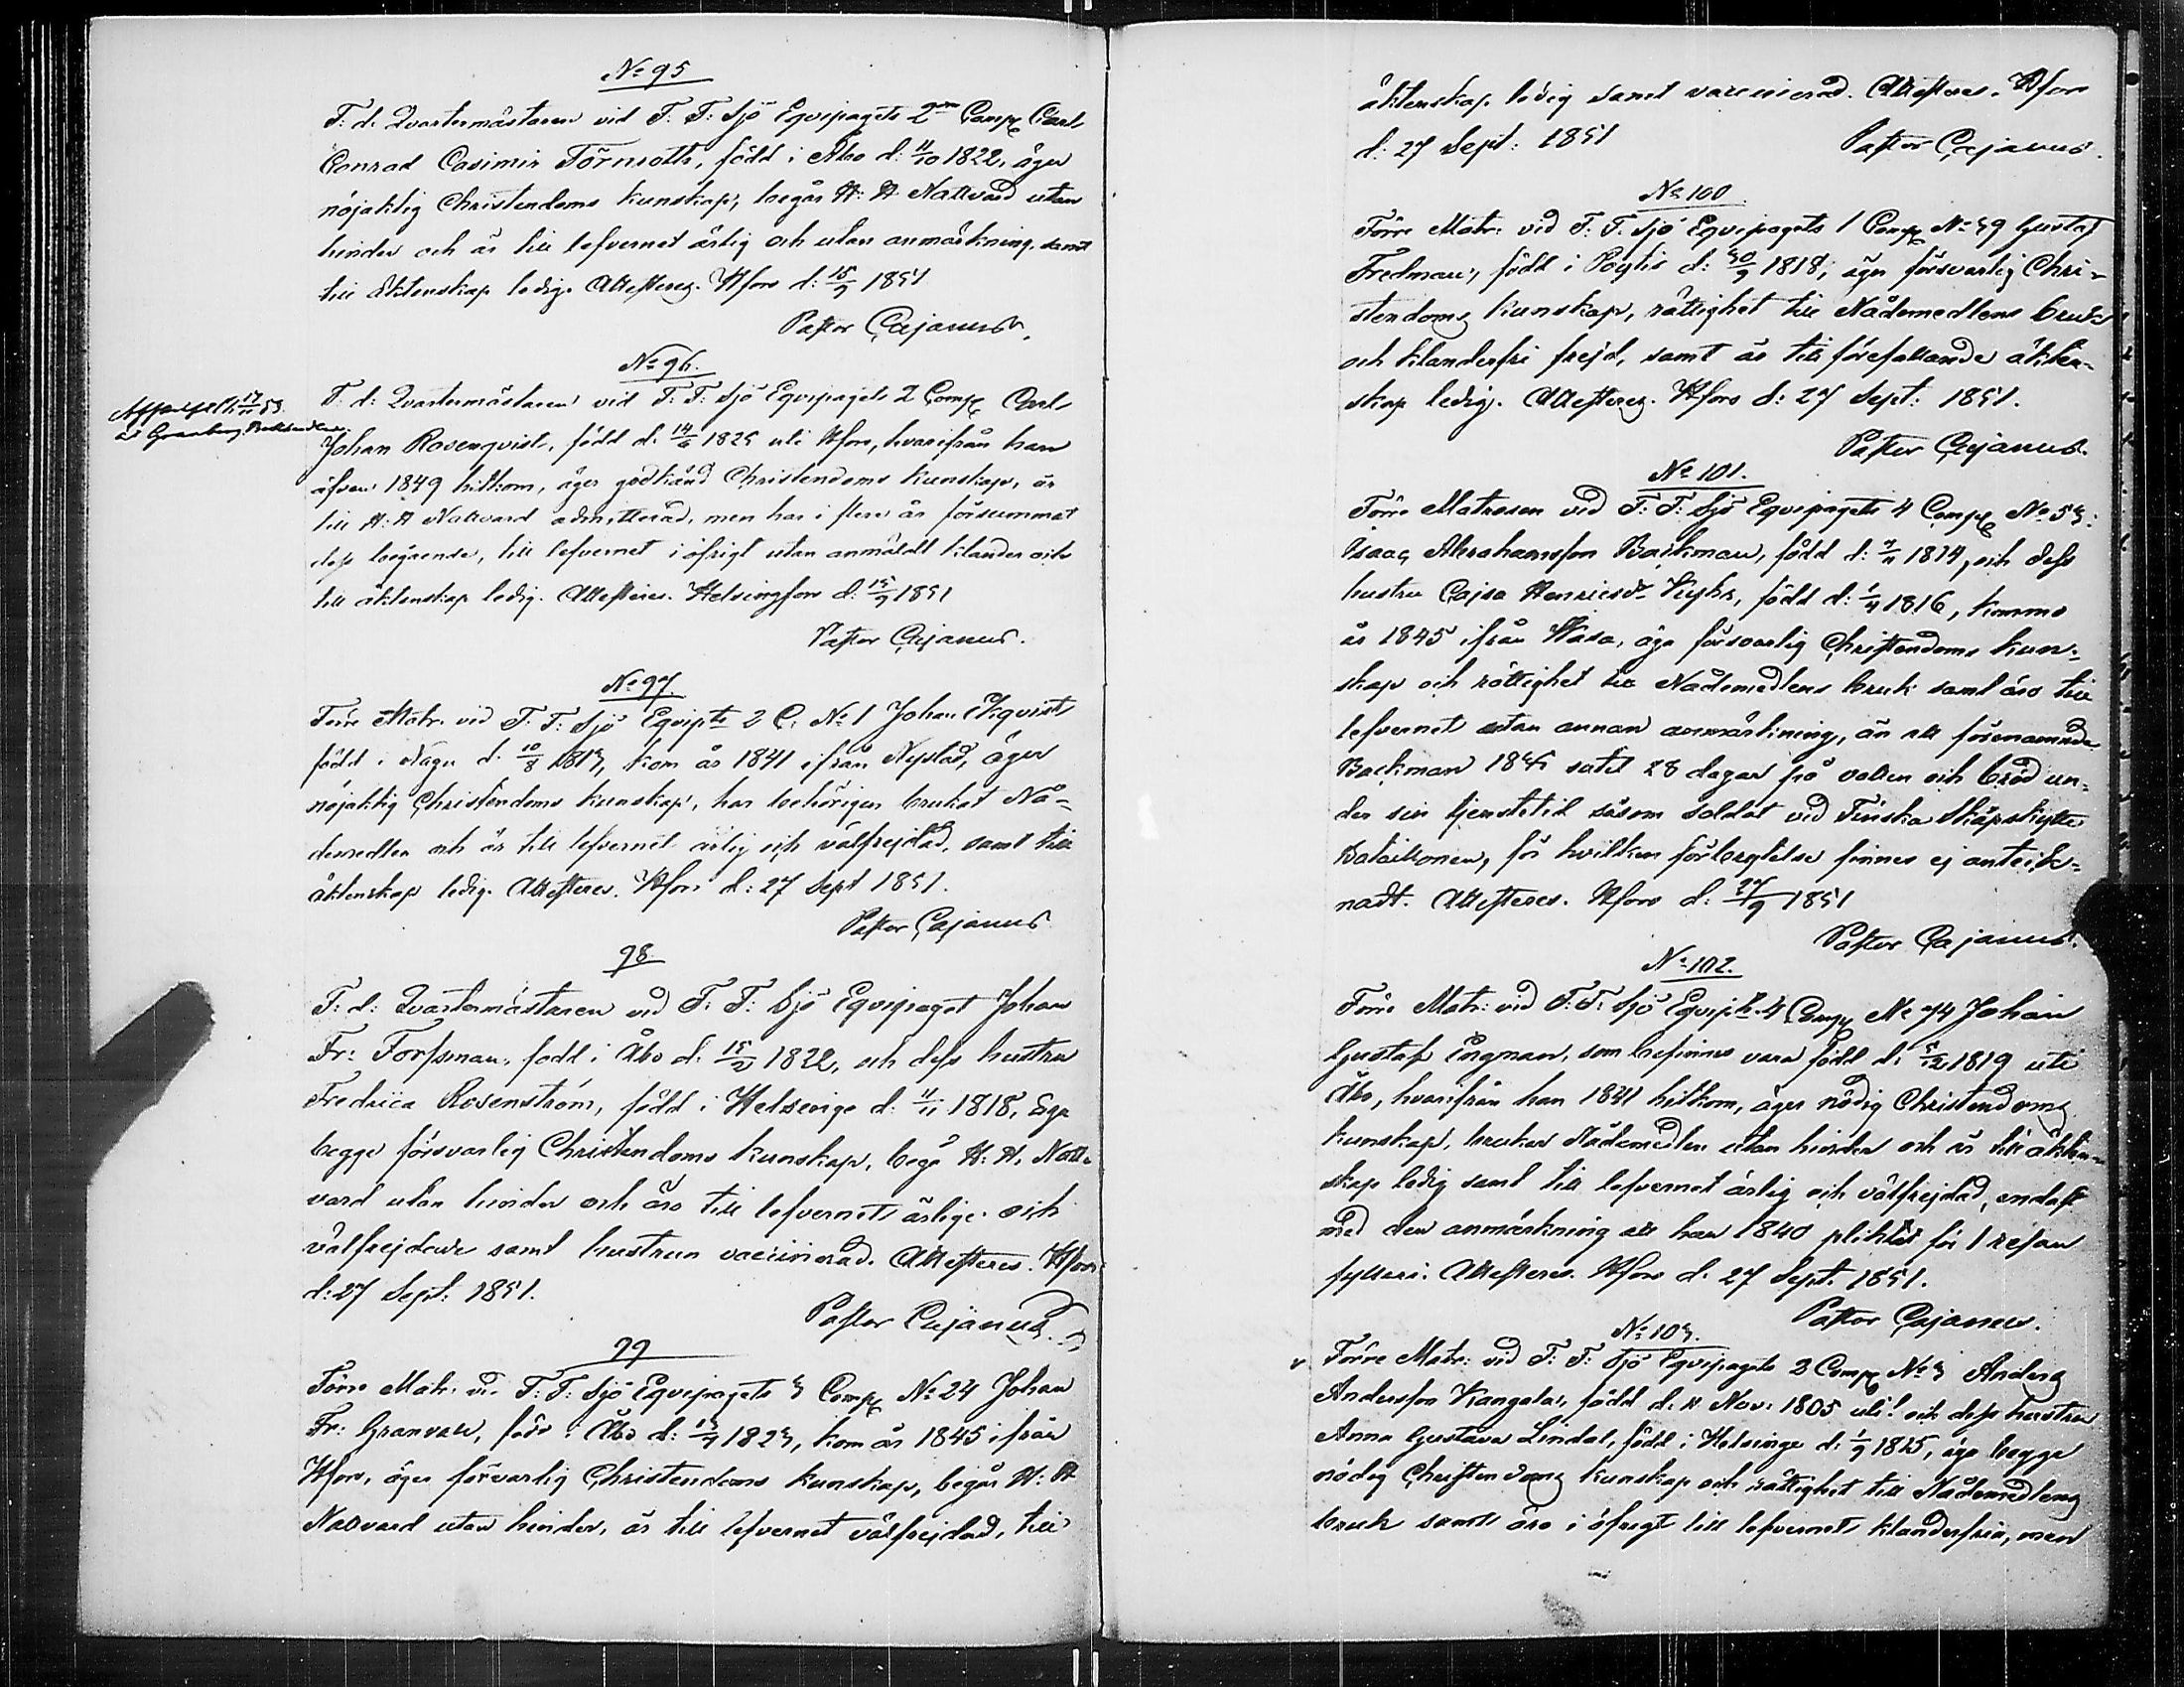 No 95
F: d: Qvartermästaren vid F: F: Sjö Eqvipagets 2dra Comp Carl
Conrad Casimir Törnroth, född i Åbo d: 11/10 1822, äger
nöjaktig Christendoms kunskap, begår H: H. Nattvard utan
hinder och är till lefvernet ärlig och utan anmärkning, samt
till äktenskap ledig. Attesteras. Hfors d: 15/9 1851
Pastor Cajanus.
No 96.
F: d: Qvartermästaren vid F: F: Sjö Eqvipagets 2 Comp Carl
17/11 53.
Granberg.
Johan Rosenqvist, född d. 14/6 1825 uti Hfors, hvarifrån han
äfven 1849 hitkom, äger godkänd Christendoms kunskap, är
till H: H Nattvard admitterad, men har i flere år försummat
dess begående, till lefvernet i öfrigt utan anmäldt klander och
till äktenskap ledig. Attesteras. Helsingfors d. 15/9 1851
Pastor Cajanus.
No 97.
Förre Matr. vid F. F: Sjö Eqvipts 2 C. No 1 Johan Ekqvist
född i Nagu d. 10/8 1813, kom år 1841 ifrån Nystad, äger
nöjaktig Christendoms kunskap, har behörigen brukat Nå-
demedlen och är till lefvernet ärlig och välfrejdad, samt till
äktenskap ledig. Attesteras. Hfors d: 27 Sept 1851.
Pastor Cajanus
98
F: d: Qvartermästaren vid F: F: Sjö Eqvipaget Johan
Fr: Forssman, född i Åbo d. 15/2 1822, och dess hustru
Fredrica Rosenström, född i Helsinge d. 11/11 1818, ega
begge försvarlig Christendoms kunskap, begå H: H. Natt-
vard utan hinder och äro till lefvernet ärlige och
välfrejdade samt hustrun vaccinerad. Attesteras. Hfors
d: 27 Sept. 1851.
Pastor Cajanus.
99
Förre Matr. vid F: F: Sjö Eqvipagets 3 Comp No 24 Johan
Fr: Granvall, född i Åbo d: 1823, kom år 1845 ifrån
Hfors, äger försvarlig Christendoms kunskap, begår H: H
Nattvard utan hinder, är till lefvernet välfrejdad, till
äktenskap ledig samt vaccinerad. Attesteras. Hfors
d: 27 Sept: 1851
Pastor Cajanus.
No 100.
Förre Matr: vid F: F. Sjö Eqvipagets 1 Comp No 39 Gustaf
Fredman, född i Pöytis d: 30/9 1818, äger försvarlig Chri-
stendoms kunskap, rättighet till Nådemedlens bruk
och klanderfri frejd, samt är till förefallande äkten-
skap ledig. Attesteras. Hfors d: 27 Sept: 1851.
Pastor Cajanus.
No 101.
Förre Matrosen vid F: F: Sjö Eqvipagets 4 Comp No 53:
Isaac Abrahamsson Backman, född d: 1814, och dess
hustru Cajsa Henricsdr född d: 1/4 1816, kommo
år 1845 ifrån Wasa, äga försvarlig Christendoms kun-
skap och rättighet till Nådemedlens bruk samt äro till
lefvernet utan annan anmärkning, än att förenämnde
Backman sutit 28 dagar på vatten och bröd un-
der sin tjenstetid såsom Soldat vid Finska Skarpskytte
Bataillonen, för hvilken förbrytelse finnes ej anteck-
nadt. Attesteras. Hfors d: 27/9 1851
Pastor Cajanus.
No 102.
Förre Matr: vid F: F: Sjö Eqvipts 4 Comp No 74 Johan
Gustaf Engman, som befinnes vara född d. 5/12 1819 uti
Åbo, hvarifrån han 1841 hitkom, äger nödig Christendoms
kunskap, brukar Nådemedlen utan hinder och är till äkten-
skap ledig samt till lefvernet ärlig och välfrejdad, endast
med den anmärkning att han 1840 pliktat för 1 resan
fylleri. Attesteras. Hfors d. 27 Sept. 1851.
Pastor Cajanus.
No 103.
Förre Matr: vid F: F: Sjö Eqvipagets 2 Comp No 3 Anders
Andersson Kangala, född d. 11 Nov: 1805 uti! och dess hustru
Anna Gustava Lindal, född i Helsinge d. 1/9 1815, äga begge
nödig Christendoms kunskap och rättighet till Nådemedlens
bruk samt äro i öfrigt till lefvernet klanderfria, men